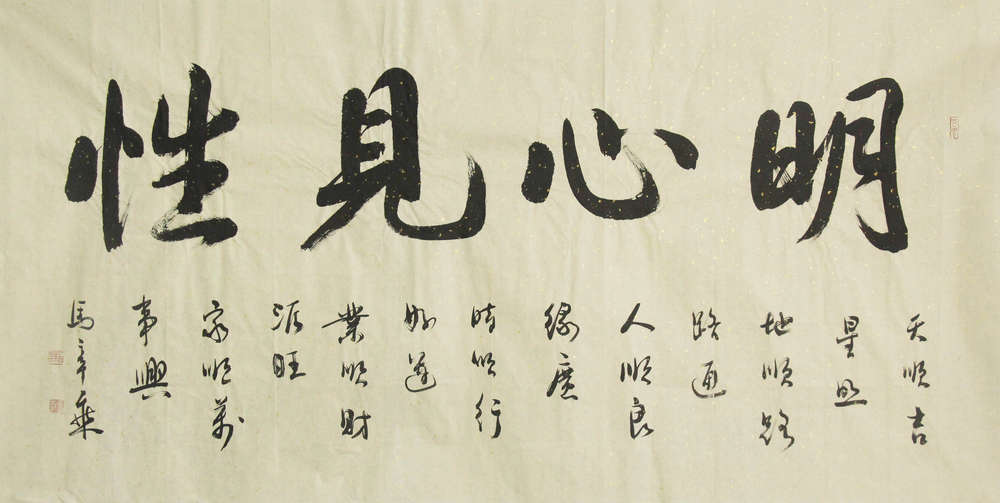 明心見性
天順吉
星照
地順路
路通
人順良
緣廣
時順行
好運
業順財
源旺
家順萬
事興
馬